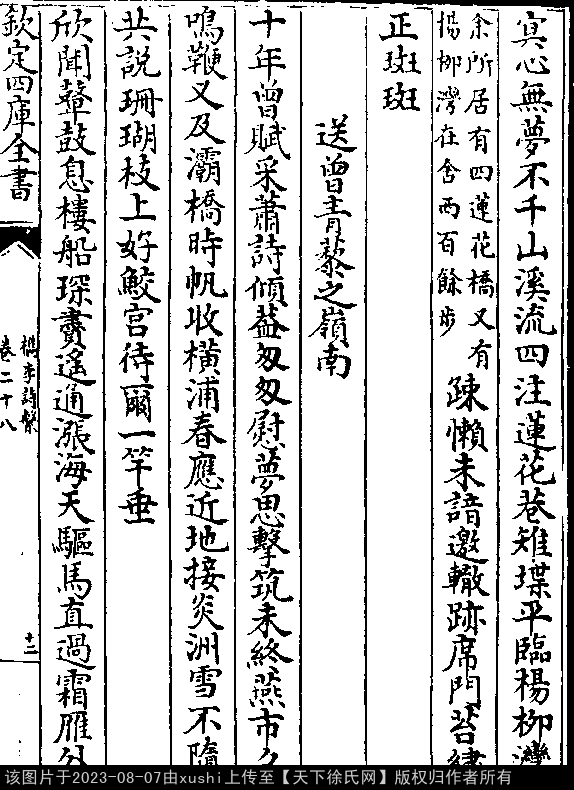 冥心無夢不千山溪流四注蓮花巷雉堞平臨楊柳灣
余所居有四蓮花橋又有
楊柳灣在舍西百餘步
疎懶未諳邀轍跡席門苔繡
正斑斑
送曾青藜之嶺南
十年曾賦采蕭詩傾葢匆匆慰夢思擊筑未終燕市夕
鳴鞭又及灞橋時帆收橫浦春應近地接炎洲雪不隨
共説珊瑚枝上好鮫宫待爾一竿垂
欣聞鼙鼓息樓船琛賮遥通漲海天驅馬直過霜雁外
欽定四庫全書
檇李詩繫
卷二十八
十二
该图片于2023-08-07由xushi上传至【天下徐氏网】版权归作者所有